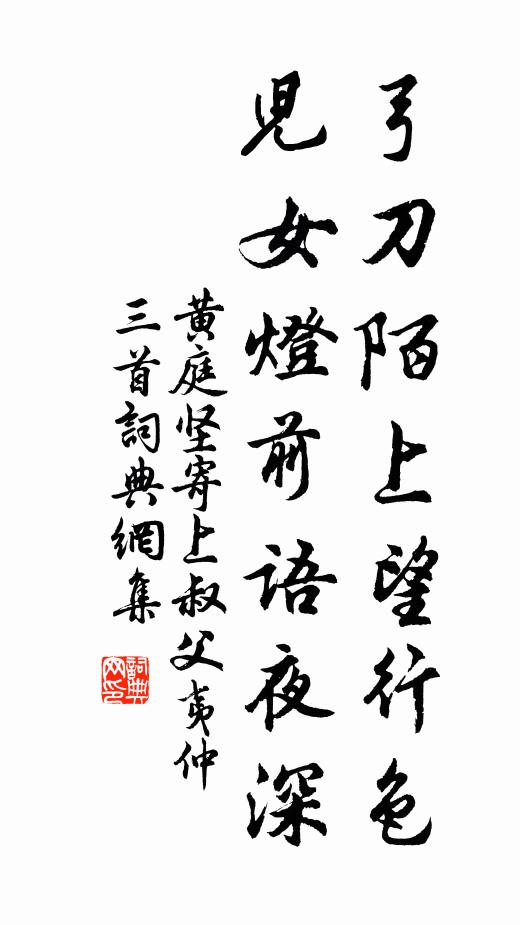 弓刀陌上望行色
兒女燈前語夜深
黄庭坚寄上叔父夷仲
三首詞典網集
詞典網印